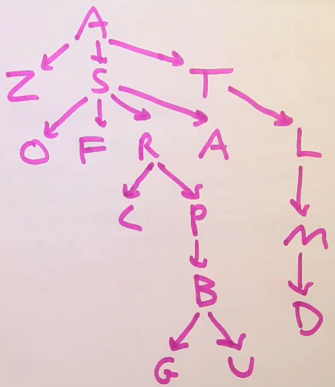 A
Z S T
O F R A L
C P M
B D
G U